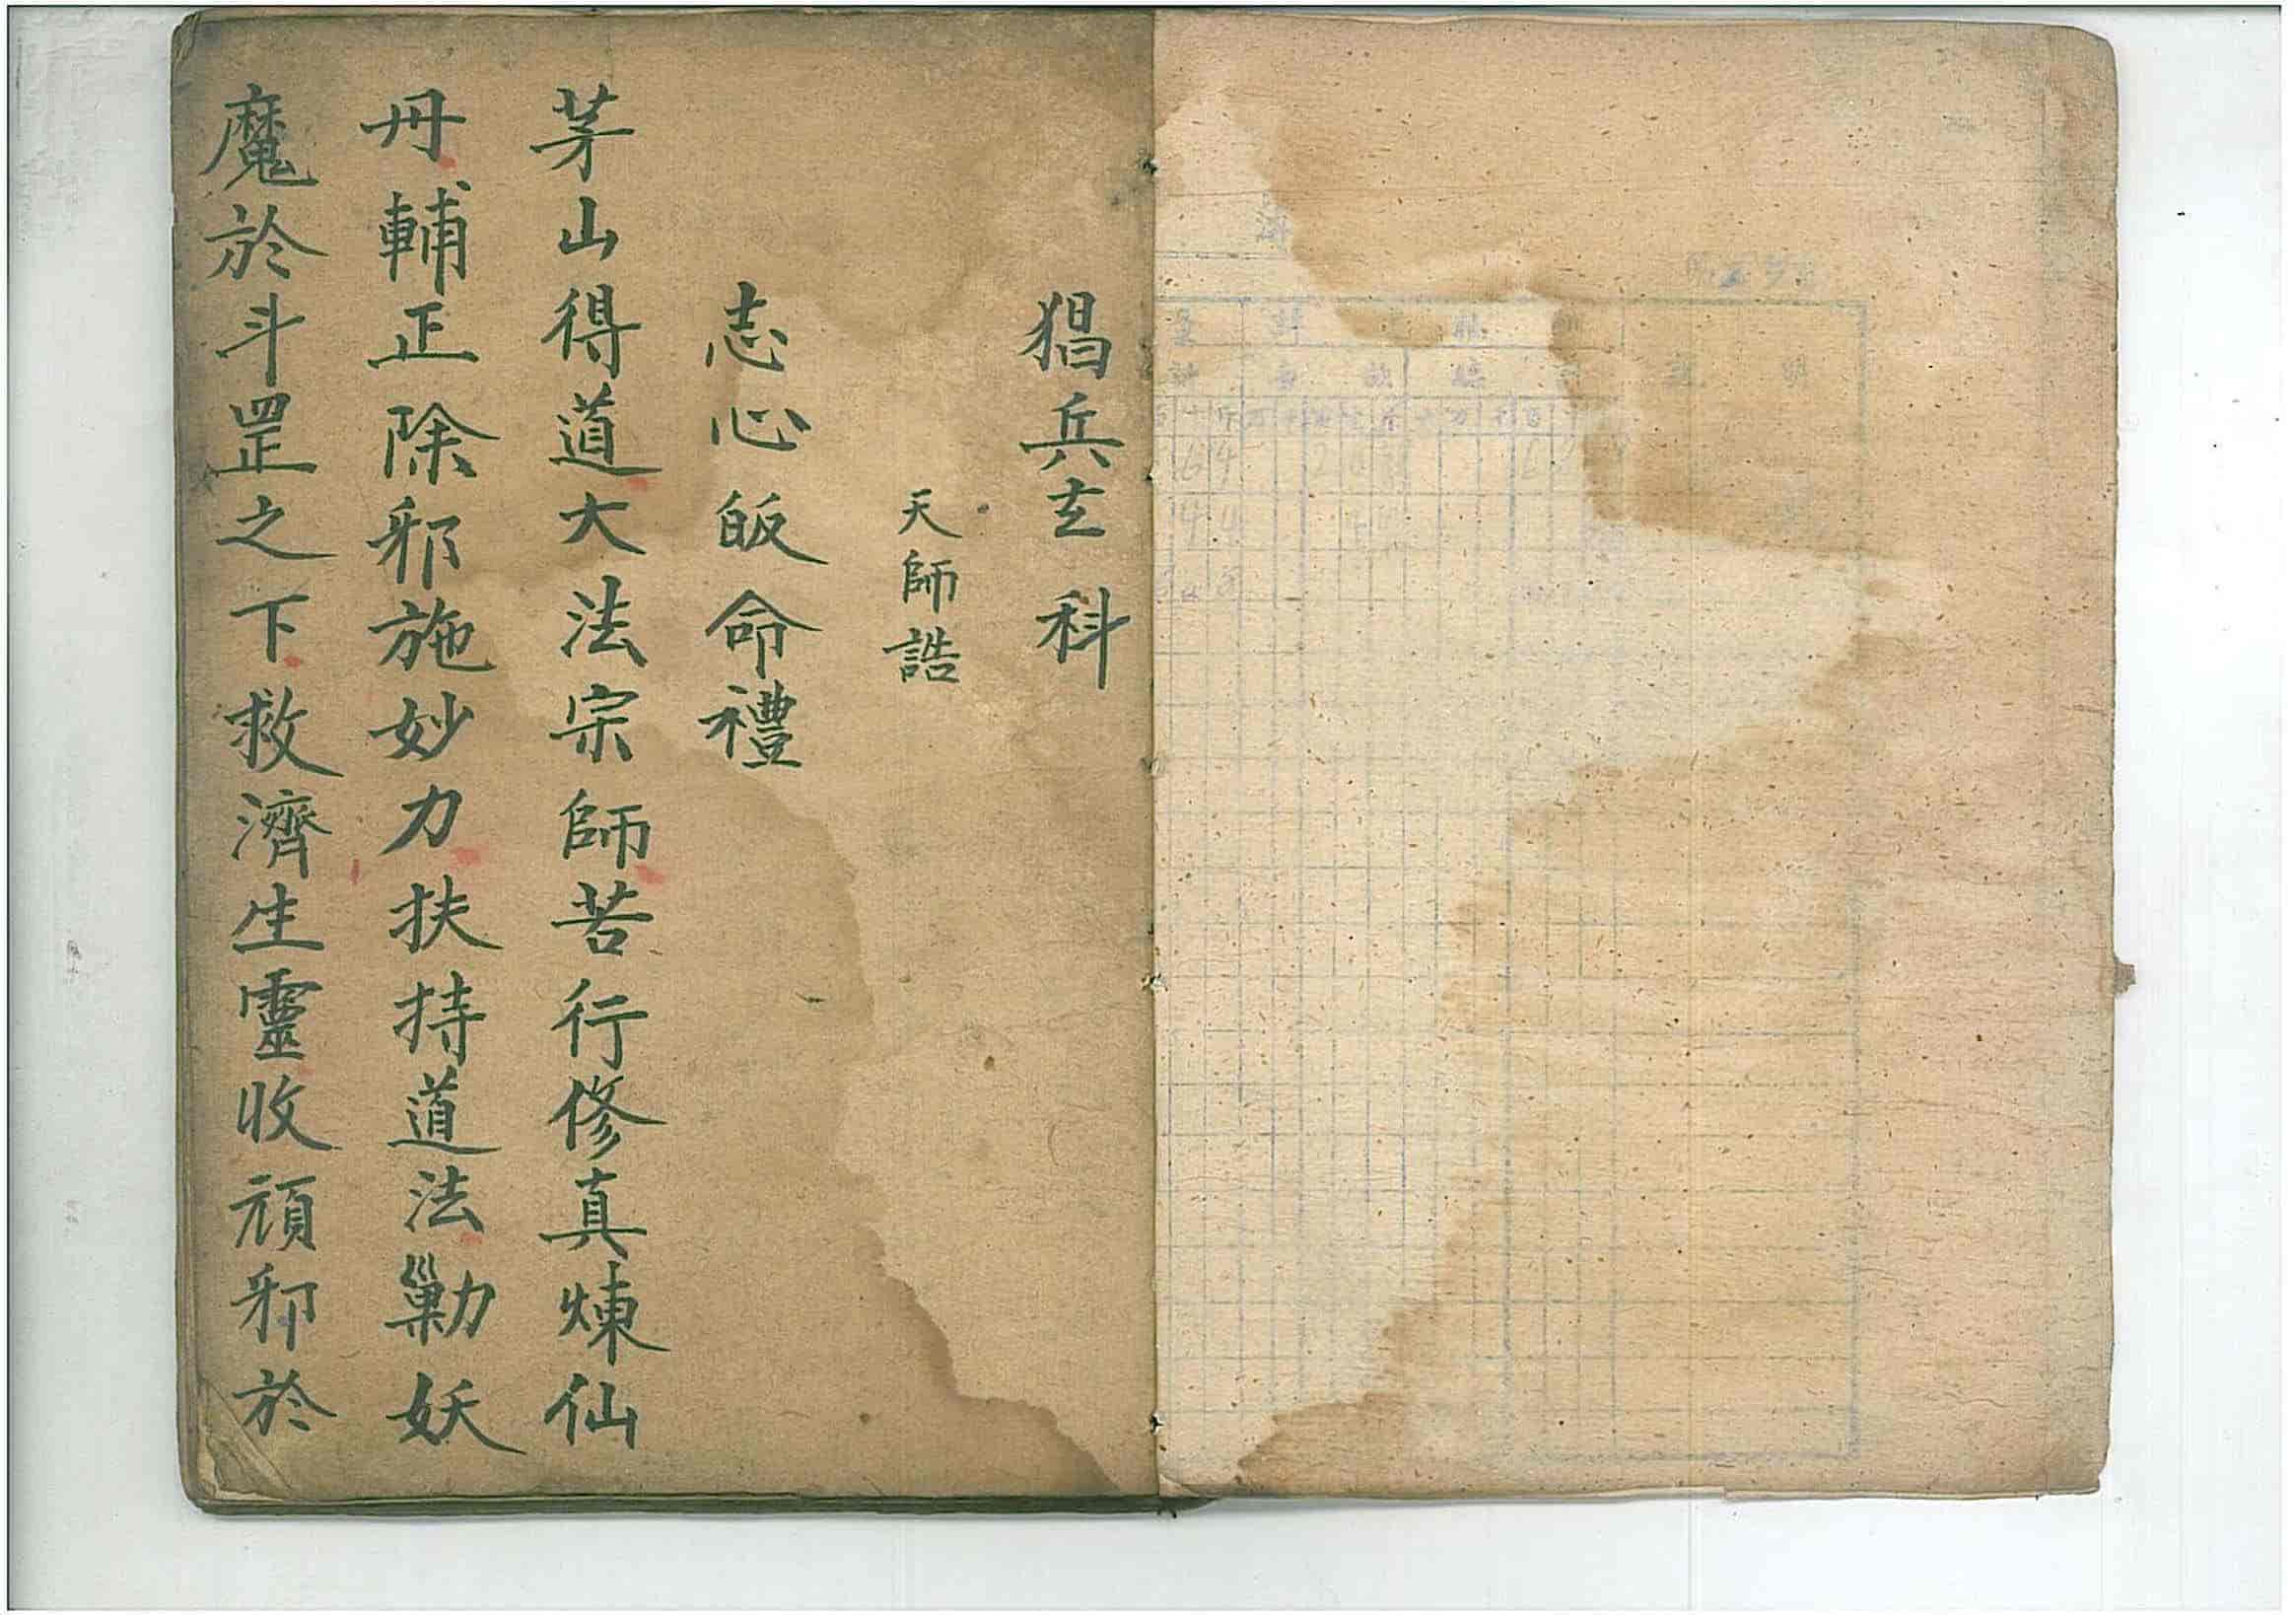 猖兵玄科
天師誥
志心皈命禮
茅山得道大法宗師苦行修真煉仙
丹輔正除邪施妙力扶持道法勦妖
魔於斗罡之下救濟生靈收頑邪於